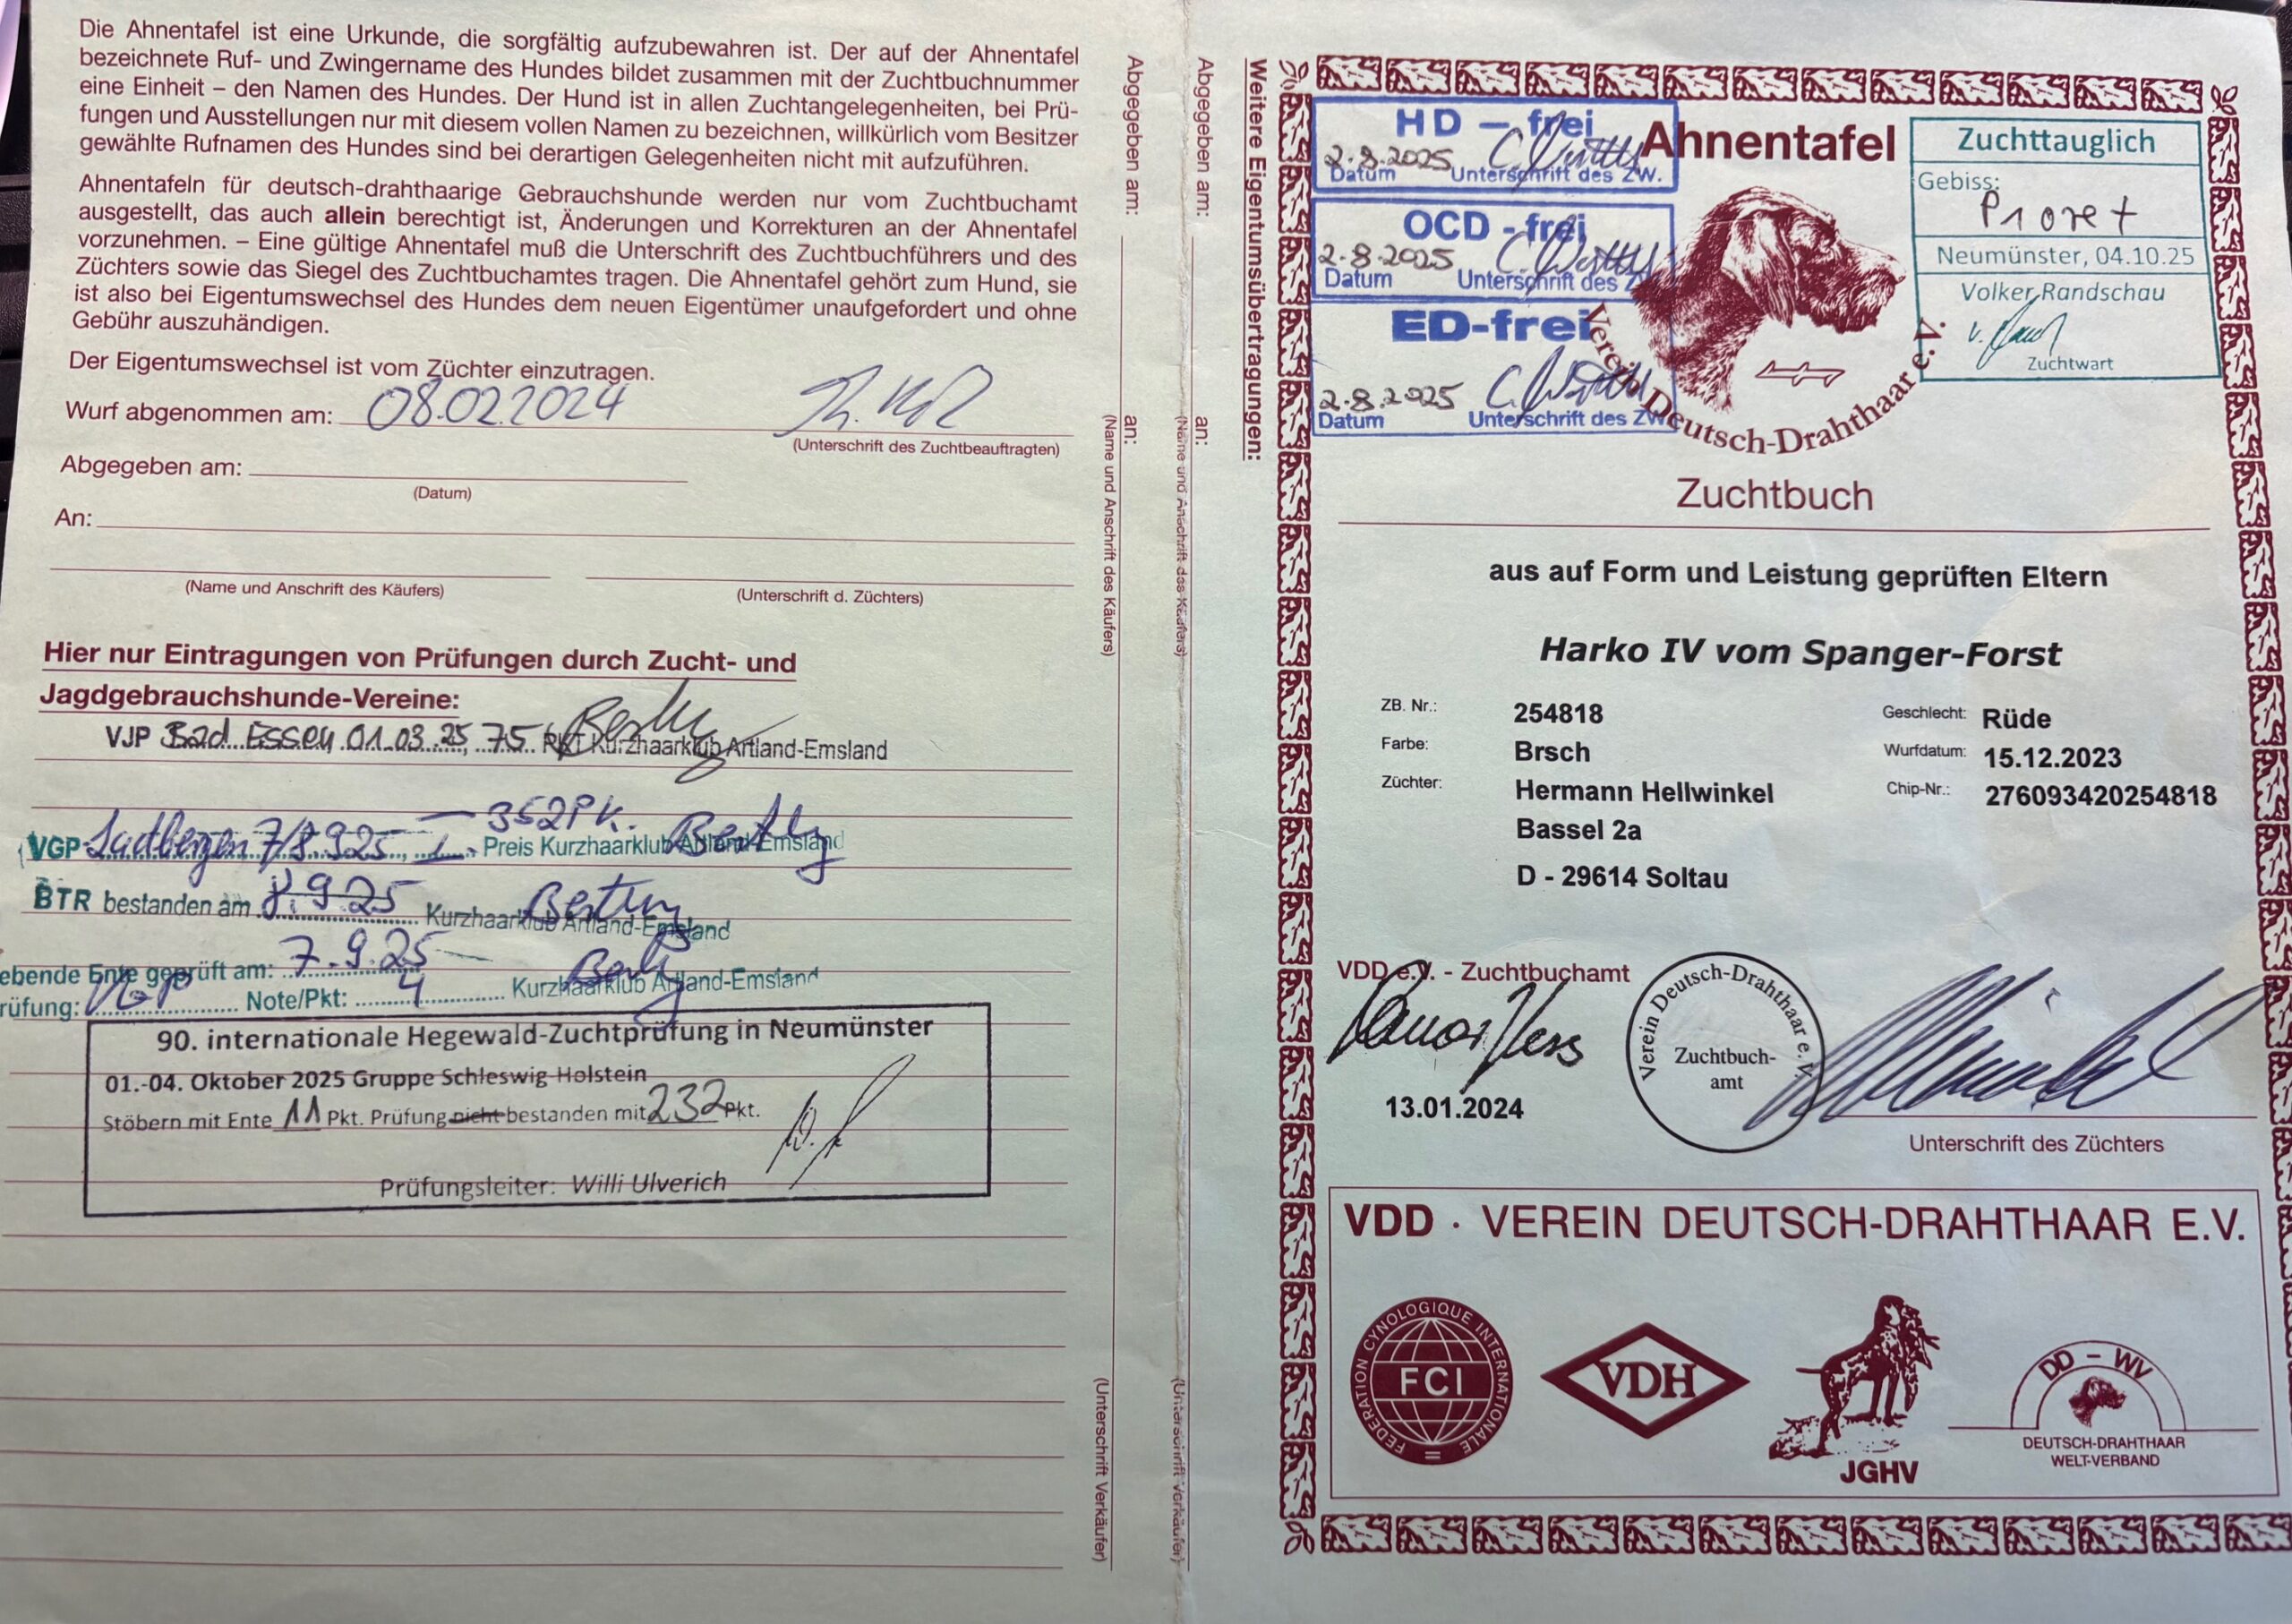 Die Ahnentafel ist eine Urkunde, die sorgfältig aufzubewahren ist. Der auf der Ahnentafel
bezeichnete Ruf- und Zwingername des Hundes bildet zusammen mit der Zuchtbuchnummer
eine Einheit – den Namen des Hundes. Der Hund ist in allen Zuchtangelegenheiten, bei Prü-
fungen und Ausstellungen nur mit diesem vollen Namen zu bezeichnen, willkürlich vom Besitzer
gewählte Rufnamen des Hundes sind bei derartigen Gelegenheiten nicht mit aufzuführen.
Ahnentafeln für deutsch-drahthaarige Gebrauchshunde werden nur vom Zuchtbuchamt
ausgestellt, das auch allein berechtigt ist, Änderungen und Korrekturen an der Ahnentafel
vorzunehmen. – Eine gültige Ahnentafel muß die Unterschrift des Zuchtbuchführers und des
Züchters sowie das Siegel des Zuchtbuchamtes tragen. Die Ahnentafel gehört zum Hund, sie
ist also bei Eigentumswechsel des Hundes dem neuen Eigentümer unaufgefordert und ohne
Gebühr auszuhändigen.
Der Eigentumswechsel ist vom Züchter einzutragen.
Wurf abgenommen am: 08.02.2024
(Unterschrift des Zuchtbeauftragten)
Abgegeben am:
(Datum)
An:
(Name und Anschrift des Käufers) (Unterschrift d. Züchters)
Hier nur Eintragungen von Prüfungen durch Zucht- und
Jagdgebrauchshunde-Vereine:
VJP Bad Essen 01.03.25, 75 Pkt Kurzhaarklub Artland-Emsland
352 Pk.
VGP 7/8.9.25 I. Preis Kurzhaarklub Artland-Emsland
BTR bestanden am 8.9.25 Kurzhaarklub Artland-Emsland
ebende Ente geprüft am: 7.9.25
rüfung: VGP Note/Pkt: 4 Kurzhaarklub Artland-Emsland
90. internationale Hegewald-Zuchtprüfung in Neumünster
01.-04. Oktober 2025 Gruppe Schleswig-Holstein
Stöbern mit Ente 11 Pkt. Prüfung nicht bestanden mit 232 Pkt.
Prüfungsleiter: Willi Ulverich
Abgegeben am: an:
(Name und Anschrift des Käufers)
(Unterschrift Verkäufer)
Abgegeben am: an:
(Name und Anschrift des Käufers)
(Unterschrift Verkäufer)
Weitere Eigentumsübertragungen:
HD – frei
2.8.2025
Datum Unterschrift des ZW.
OCD - frei
2.8.2025
Datum Unterschrift des
ED-frei
2.8.2025
Datum Unterschrift des ZW
Ahnentafel
Zuchttauglich
Gebiss:
Neumünster, 04.10.25
Volker Randschau
Zuchtwart
Verein Deutsch-Drahthaar e.V.
Zuchtbuch
aus auf Form und Leistung geprüften Eltern
Harko IV vom Spanger-Forst
ZB. Nr.: 254818 Geschlecht: Rüde
Farbe: Brsch Wurfdatum: 15.12.2023
Züchter: Hermann Hellwinkel Chip-Nr.: 276093420254818
Bassel 2a
D - 29614 Soltau
VDD e.V. - Zuchtbuchamt
Verein Deutsch-Drahthaar e. V.
Zuchtbuch-
amt
13.01.2024
Unterschrift des Züchters
VDD · VEREIN DEUTSCH-DRAHTHAAR E.V.
FEDERATION CYNOLOGIQUE INTERNATIONALE
FCI
VDH
JGHV
DD – WV
DEUTSCH-DRAHTHAAR
WELT-VERBAND